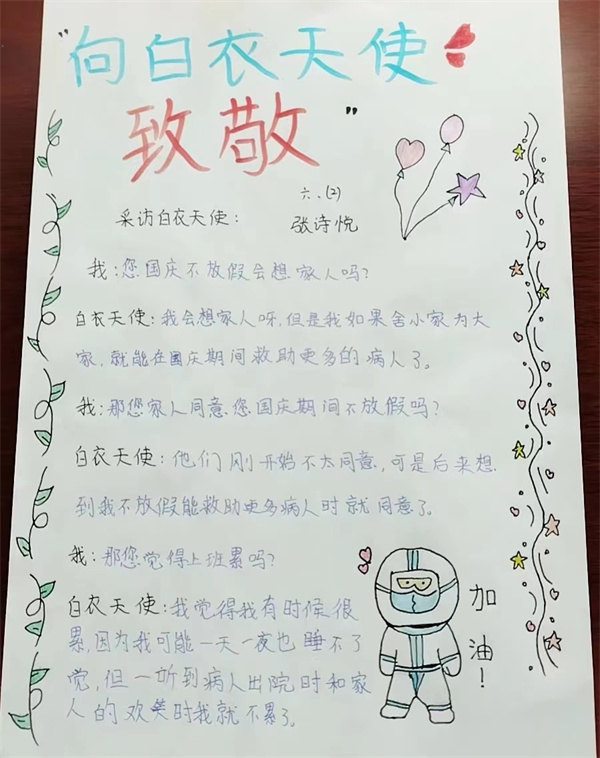 “向白衣天使
致敬”
六.(2)
采访白衣天使：
张诗悦
我：您国庆不放假会想家人吗？
白衣天使：我会想家人呀，但是我如果舍小家为大
家，就能在国庆期间救助更多的病人了。
我：那您家人同意您国庆期间不放假吗？
白衣天使：他们刚开始不太同意，可是后来想
到我不放假能救助更多病人时就同意了。
我：那您觉得上班累吗？
白衣天使：我觉得我有时候很
累，因为我可能一天一夜也睡不了
觉，但一听到病人出院时和家
人的欢笑时我就不累了。
加
油！